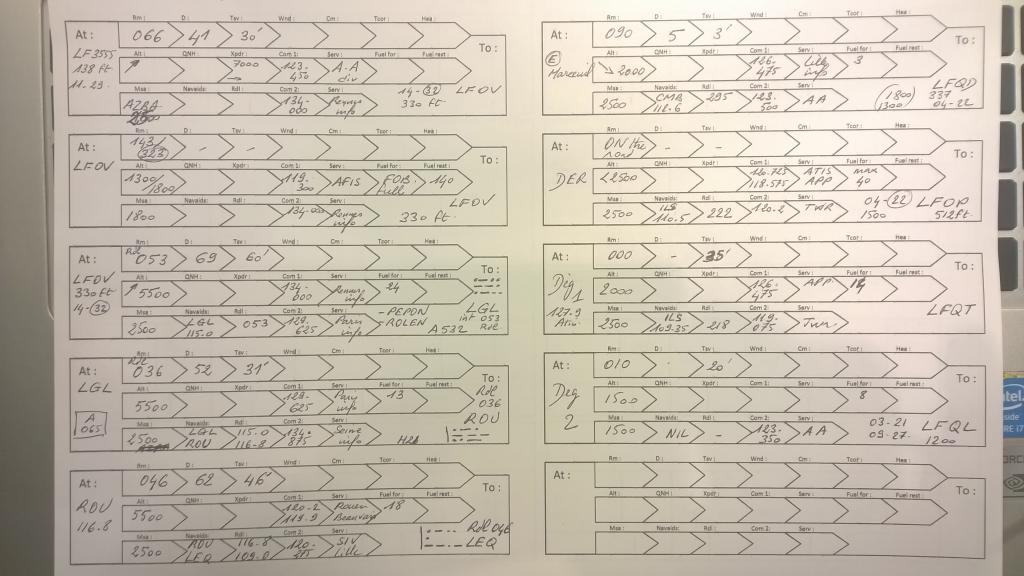 Rm : D : Tsv : Wnd : Cm : Tcor : Hea :
At : 066 41 30' To :
LF3555
138 ft
11-29.
Alt : QNH : Xpdr : Com 1 : Serv : Fuel for : Fuel rest :
7000 123-450 A-A div
14-32 LFOV
330 ft
Msa : Navaids: Rdl : Com 2 : Serv :
134-000 Rennes info
Rm : D : Tsv : Wnd : Cm : Tcor : Hea :
At : 143/323 - - To :
LFOV
Alt : QNH : Xpdr : Com 1 : Serv : Fuel for : Fuel rest :
1300/1800 119.300 AFIS FOB. full 140
LFOV
Msa : Navaids: Rdl : Com 2 : Serv :
1800 134-000 Rennes info 330 ft.
Rm : D : Tsv : Wnd : Cm : Tcor : Hea :
At : Rdl 053 69 60' To :
LFOV
330 ft
14-32
Alt : QNH : Xpdr : Com 1 : Serv : Fuel for : Fuel rest :
5500 134-000 Rennes info 24
LGL
int 053
Rdl
Msa : Navaids: Rdl : Com 2 : Serv :
2500 LGL 115.0 053 129.625 Paris info
- PEPON
ROLEN A532
Rm : D : Tsv : Wnd : Cm : Tcor : Hea :
At : Rdl 036 52 31' To :
LGL
Rdl 036
Alt : QNH : Xpdr : Com 1 : Serv : Fuel for : Fuel rest :
5500 129.625 Paris info 13
ROU
A 065
Msa : Navaids: Rdl : Com 2 : Serv :
2500 LGL ROU 115.0 116-8 134-875 Seine info
Rm : D : Tsv : Wnd : Cm : Tcor : Hea :
At : 046 62 46' To :
ROU
116.8
Alt : QNH : Xpdr : Com 1 : Serv : Fuel for : Fuel rest :
5500 120-2 119.9 Rouen Beauvais 18
Rdl 046
LEQ
Msa : Navaids: Rdl : Com 2 : Serv :
2500 ROU LEQ 116.8 109.0 SIV Lille
Rm : D : Tsv : Wnd : Cm : Tcor : Hea :
At : 090 5 3' To :
E
Alt : QNH : Xpdr : Com 1 : Serv : Fuel for : Fuel rest :
2000 126-475 Lille info 3
LFQD
337
04-22
(1800)
1300
Msa : Navaids: Rdl : Com 2 : Serv :
2500 CMB 112.6 295 123-500 AA
Rm : D : Tsv : Wnd : Cm : Tcor : Hea :
At : ON the road - - To :
DER
Alt : QNH : Xpdr : Com 1 : Serv : Fuel for : Fuel rest :
22500 120.725 118.575 ATIS APP max 40
04-22 LFOP
1500 512ft.
Msa : Navaids: Rdl : Com 2 : Serv :
2500 ILS 110.5 222 120.2 TWR
Rm : D : Tsv : Wnd : Cm : Tcor : Hea :
At : 000 - 35' To :
Deg 1
127.9
Alt : QNH : Xpdr : Com 1 : Serv : Fuel for : Fuel rest :
2000 126-475 APP. 14
LFQT
Msa : Navaids: Rdl : Com 2 : Serv :
2500 ILS 109.35 218 119-075 Twr.
Rm : D : Tsv : Wnd : Cm : Tcor : Hea :
At : 010 20' To :
Deg 2
Alt : QNH : Xpdr : Com 1 : Serv : Fuel for : Fuel rest :
1500 8
03-21 LFQL
09-27. 1200
Msa : Navaids: Rdl : Com 2 : Serv :
1500 NIL - 123-350 AA
Rm : D : Tsv : Wnd : Cm : Tcor : Hea :
At : To :
Alt : QNH : Xpdr : Com 1 : Serv : Fuel for : Fuel rest :
Msa : Navaids: Rdl : Com 2 : Serv :